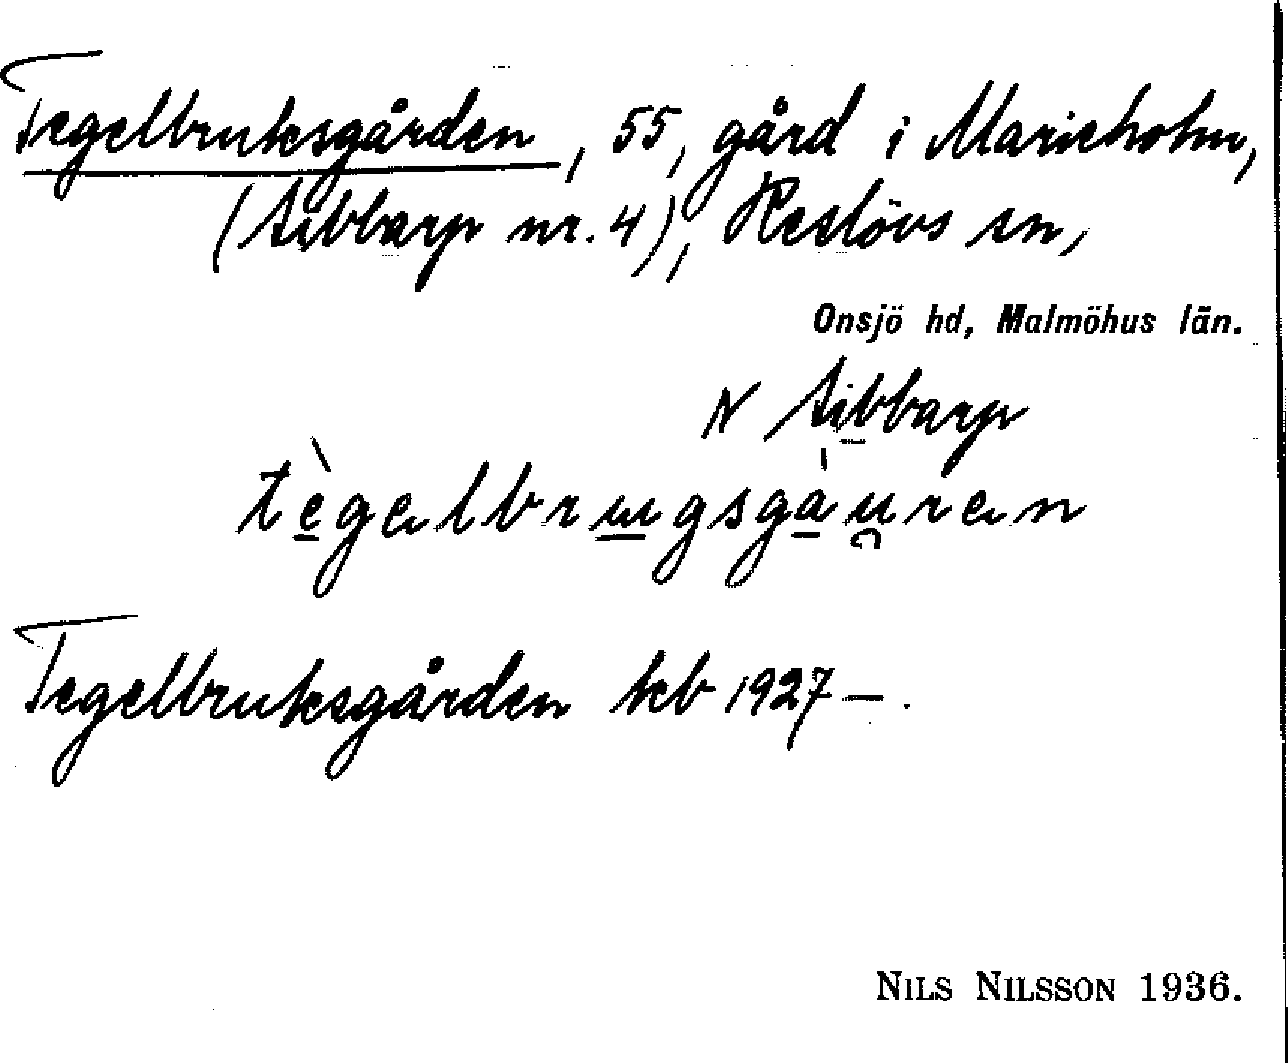 Tegelbruksgården, 55, gård i Marieholm,
(Sibbarp nr. 4), Reslövs sn,
Onsjö hd, Malmöhus län.
N Sibbarp
tègəlbrɯgsgau̯rən
Tegelbruksgården kb 1927–.
NILS NILSSON 1936.